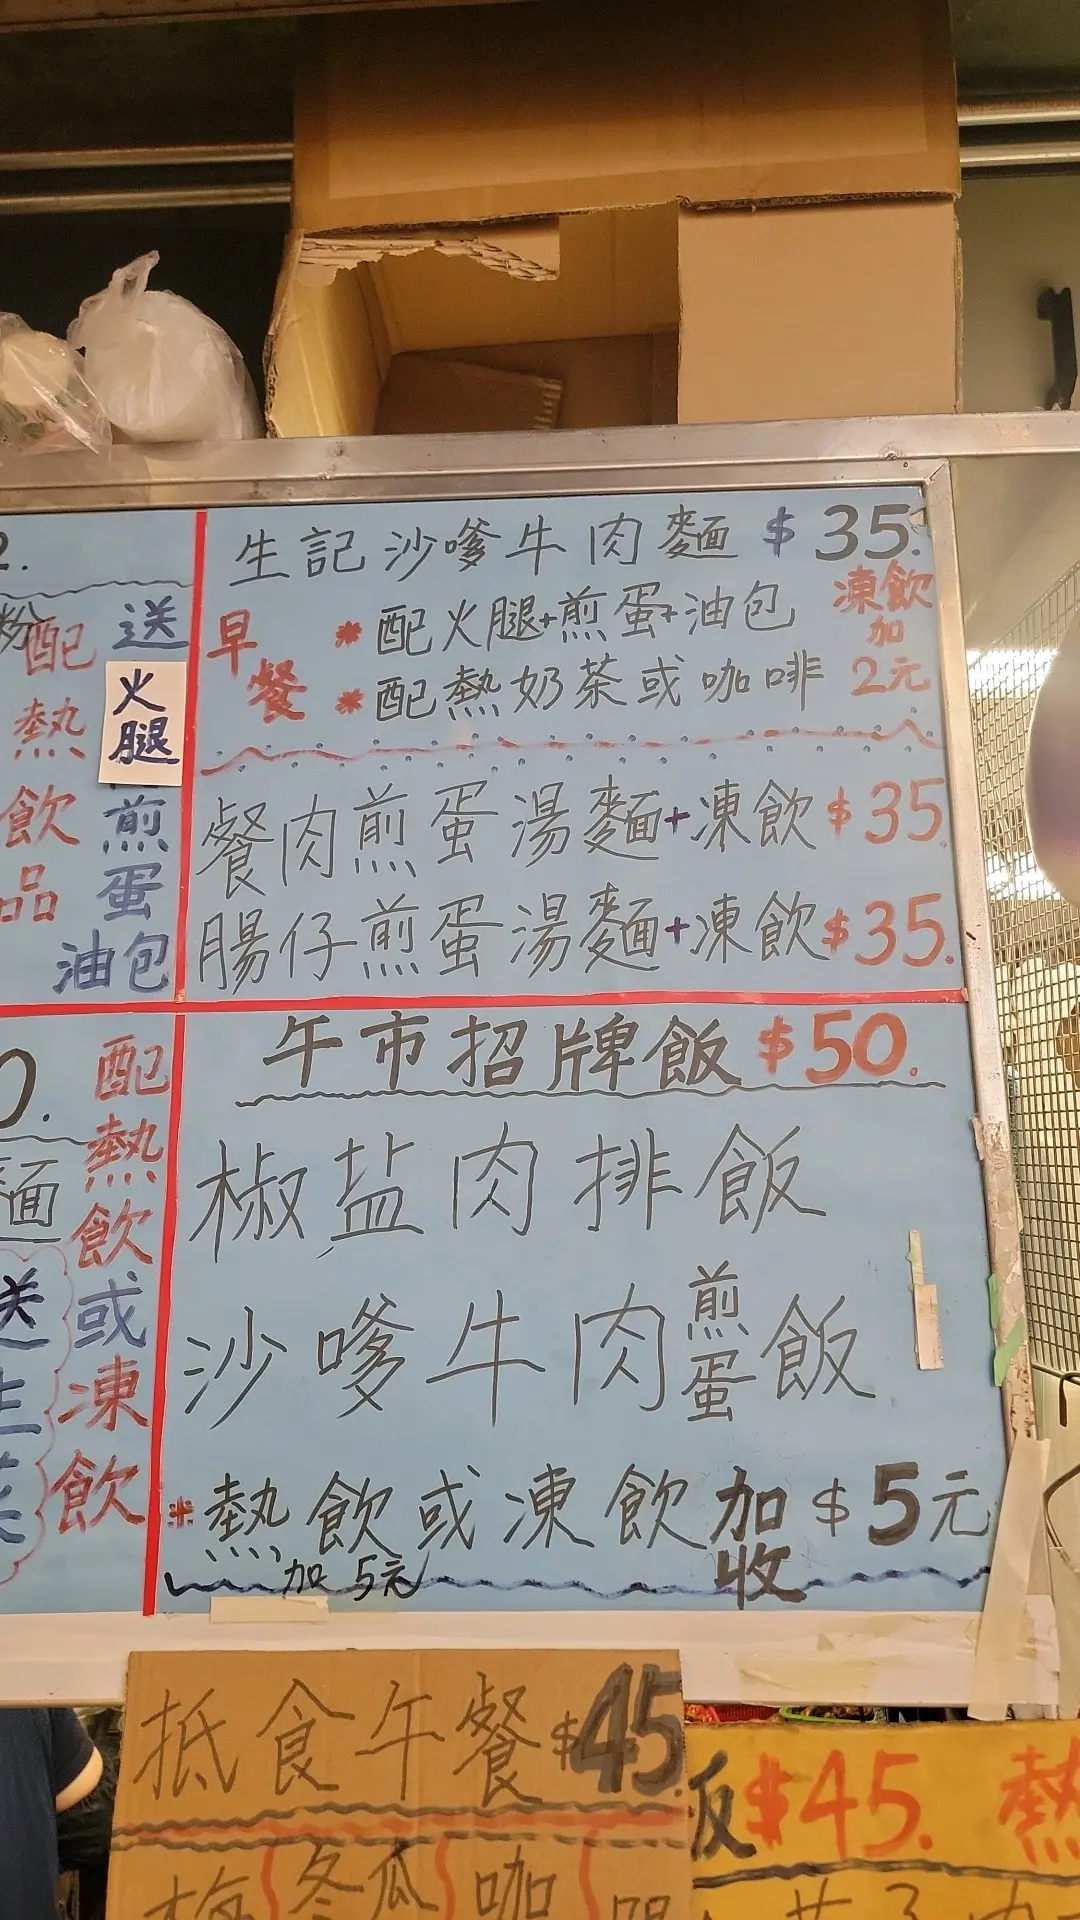 2.
粉
配熱飲品
送
火腿
煎蛋
油包
生記沙嗲牛肉麵 $35.
早餐
* 配火腿+煎蛋+油包
* 配熱奶茶或咖啡
凍飲
加
2元
餐肉煎蛋湯麵+凍飲 $35.
腸仔煎蛋湯麵+凍飲 $35.
0.
麵
送生菜
配熱飲或凍飲
午市招牌飯 $50.
椒盐肉排飯
沙嗲牛肉煎蛋飯
※熱飲或凍飲加收 $5元
加5元
抵食午餐 $45
梅 冬瓜 咖
飯 $45. 熱